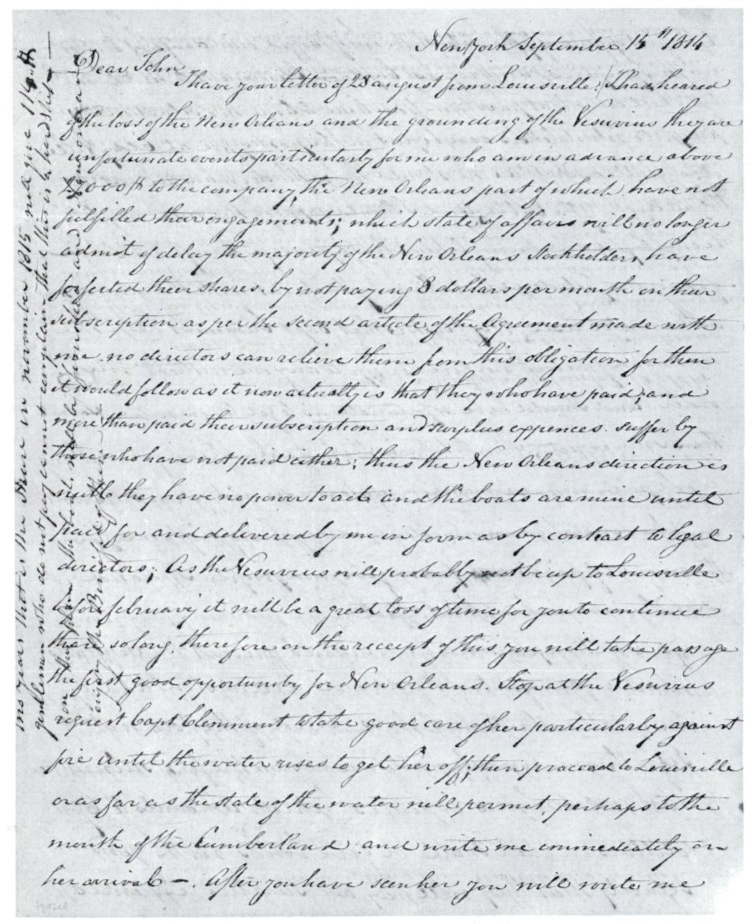 New York September 15th 1814
Dear John
I have your letter of 28 august from Louisville. I had heared
of the loss of the New Orleans and the grounding of the Vesuvius they are
unfortunate events particularly for me who am in advance above
000$ to the company, the New Orleans part of which have not
fulfilled their engagements; which state of affairs will no longer
admit of delay the majority of the New Orleans Stockholders have
forfeited their shares by not paying 8 dollars per month on their
subscription as per the second article of the Agreement made with
me. no directors can relieve them from this obligation for then
it would follow as it now actually is that they who have paid, and
more than paid their subscription and surplus expences suffer by
those who have not paid either; thus the New Orleans direction is
null they have no power to act and the boats are mine until
paid for and delivered by me in form as by contract to legal
directors; As the Vesuvius will probably not be up to Louisville
before february it will be a great loss of time for you to continue
there so long, therefore on the receipt of this you will take passage
the first good opportunity for New Orleans. Stop at the Vesuvius
request Capt Clemment to take good care of her particularly against
fire until the water rises to get her off, then proceed to Louisville
or as far as the state of the water will permit, perhaps to the
mouth of the Cumberland and write me immediately on
her arrival –. After you have seen her you will write me
on the share in november 1815 may give 114
gentlemen who do not pay cannot complain that this is a hardship